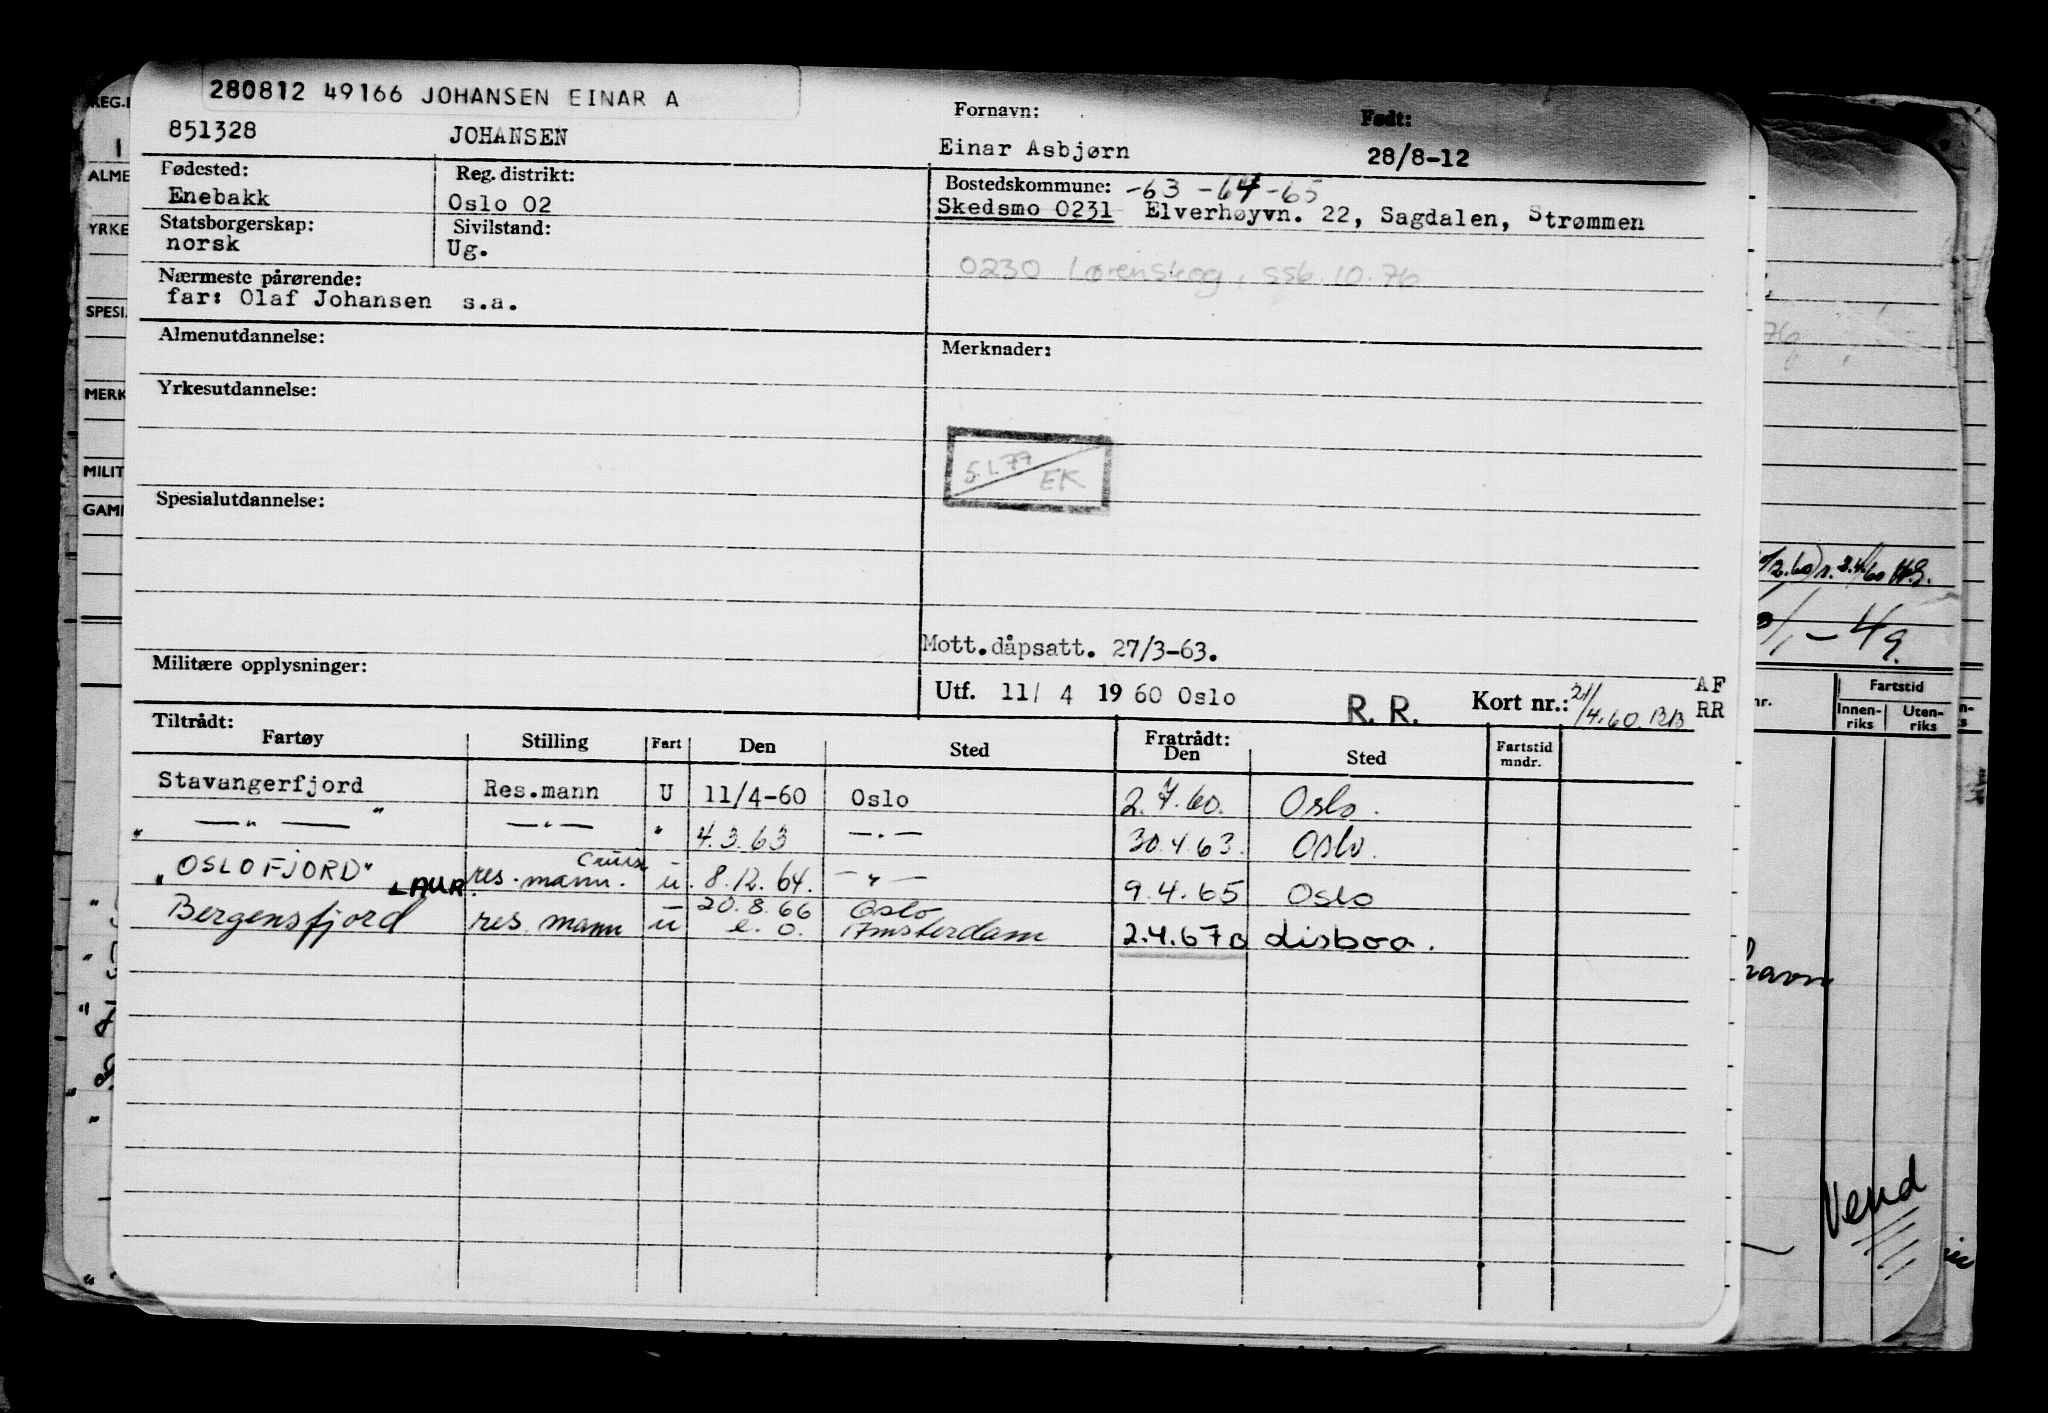 280812 49166 JOHANSEN EINAR A
851328 JOHANSEN
Fornavn: Født:
Einar Asbjørn 28/8-12
Fødested: Reg. distrikt: Bostedskommune: -63 -64 -65
Enebakk Oslo 02 Skedsmo 0231 Elverhøyvn. 22, Sagdalen, Strømmen
Statsborgerskap: Sivilstand:
norsk Ug.
0230 Lørenskog, ssb. 10.76
Nærmeste pårørende:
far: Olaf Johansen s.a.
Almenutdannelse: Merknader:
Yrkesutdannelse:
5.1.77 EK
Spesialutdannelse:
Mott.dåpsatt. 27/3-63.
Militære opplysninger:
Utf. 11/ 4 19 60 Oslo R. R. Kort nr.: 21/4.60 BB AF RR
Tiltrådt: Fratrådt:
Fartøy Stilling Fart Den Sted Den Sted Fartstid mndr.
Stavangerfjord Res.mann U 11/4-60 Oslo 2.7.60. Oslo.
" —"— " —"— " 4.3.63 —"— 30.4.63. Oslo.
"OSLOFJORD" LAUR. res. mann. Cruise u. 8.12.64. —"— 9.4.65 Oslo
Bergensfjord res. mann u 20.8.66 Oslo
e. o. Amsterdam 2.4.67 Lisboa.
REG.
ALME
YRKE
SPESI
MERK
MILIT
GAM
76
2.4/60
/1-49.
nr. Fartstid
Innen-riks Uten-riks
havn
Vend